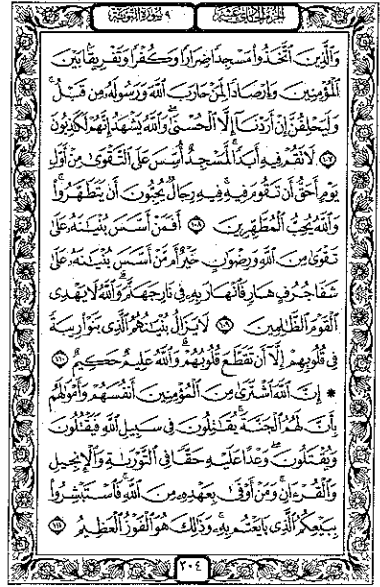 الجزء الحادي عشر ٩ سورة التوبة
وَٱلَّذِينَ ٱتَّخَذُواْ مَسۡجِدٗا ضِرَارٗا وَكُفۡرٗا وَتَفۡرِيقَۢا بَيۡنَ
ٱلۡمُؤۡمِنِينَ وَإِرۡصَادٗا لِّمَنۡ حَارَبَ ٱللَّهَ وَرَسُولَهُۥ مِن قَبۡلُۚ
وَلَيَحۡلِفُنَّ إِنۡ أَرَدۡنَآ إِلَّا ٱلۡحُسۡنَىٰۖ وَٱللَّهُ يَشۡهَدُ إِنَّهُمۡ لَكَٰذِبُونَ
١٠٧ لَا تَقُمۡ فِيهِ أَبَدٗاۚ لَّمَسۡجِدٌ أُسِّسَ عَلَى ٱلتَّقۡوَىٰ مِنۡ أَوَّلِ
يَوۡمٍ أَحَقُّ أَن تَقُومَ فِيهِۚ فِيهِ رِجَالٞ يُحِبُّونَ أَن يَتَطَهَّرُواْۚ
وَٱللَّهُ يُحِبُّ ٱلۡمُطَّهِّرِينَ ١٠٨ أَفَمَنۡ أَسَّسَ بُنۡيَٰنَهُۥ عَلَىٰ
تَقۡوَىٰ مِنَ ٱللَّهِ وَرِضۡوَٰنٍ خَيۡرٌ أَم مَّنۡ أَسَّسَ بُنۡيَٰنَهُۥ عَلَىٰ
شَفَا جُرُفٍ هَارٖ فَٱنۡهَارَ بِهِۦ فِي نَارِ جَهَنَّمَۗ وَٱللَّهُ لَا يَهۡدِي
ٱلۡقَوۡمَ ٱلظَّٰلِمِينَ ١٠٩ لَا يَزَالُ بُنۡيَٰنُهُمُ ٱلَّذِي بَنَوۡاْ رِيبَةٗ
فِي قُلُوبِهِمۡ إِلَّآ أَن تَقَطَّعَ قُلُوبُهُمۡۗ وَٱللَّهُ عَلِيمٌ حَكِيمٌ ١١٠
۞ إِنَّ ٱللَّهَ ٱشۡتَرَىٰ مِنَ ٱلۡمُؤۡمِنِينَ أَنفُسَهُمۡ وَأَمۡوَٰلَهُم
بِأَنَّ لَهُمُ ٱلۡجَنَّةَۚ يُقَٰتِلُونَ فِي سَبِيلِ ٱللَّهِ فَيَقۡتُلُونَ
وَيُقۡتَلُونَۖ وَعۡدًا عَلَيۡهِ حَقّٗا فِي ٱلتَّوۡرَىٰةِ وَٱلۡإِنجِيلِ
وَٱلۡقُرۡءَانِۚ وَمَنۡ أَوۡفَىٰ بِعَهۡدِهِۦ مِنَ ٱللَّهِۚ فَٱسۡتَبۡشِرُواْ
بِبَيۡعِكُمُ ٱلَّذِي بَايَعۡتُم بِهِۦۚ وَذَٰلِكَ هُوَ ٱلۡفَوۡزُ ٱلۡعَظِيمُ ١١١
٢٠٤